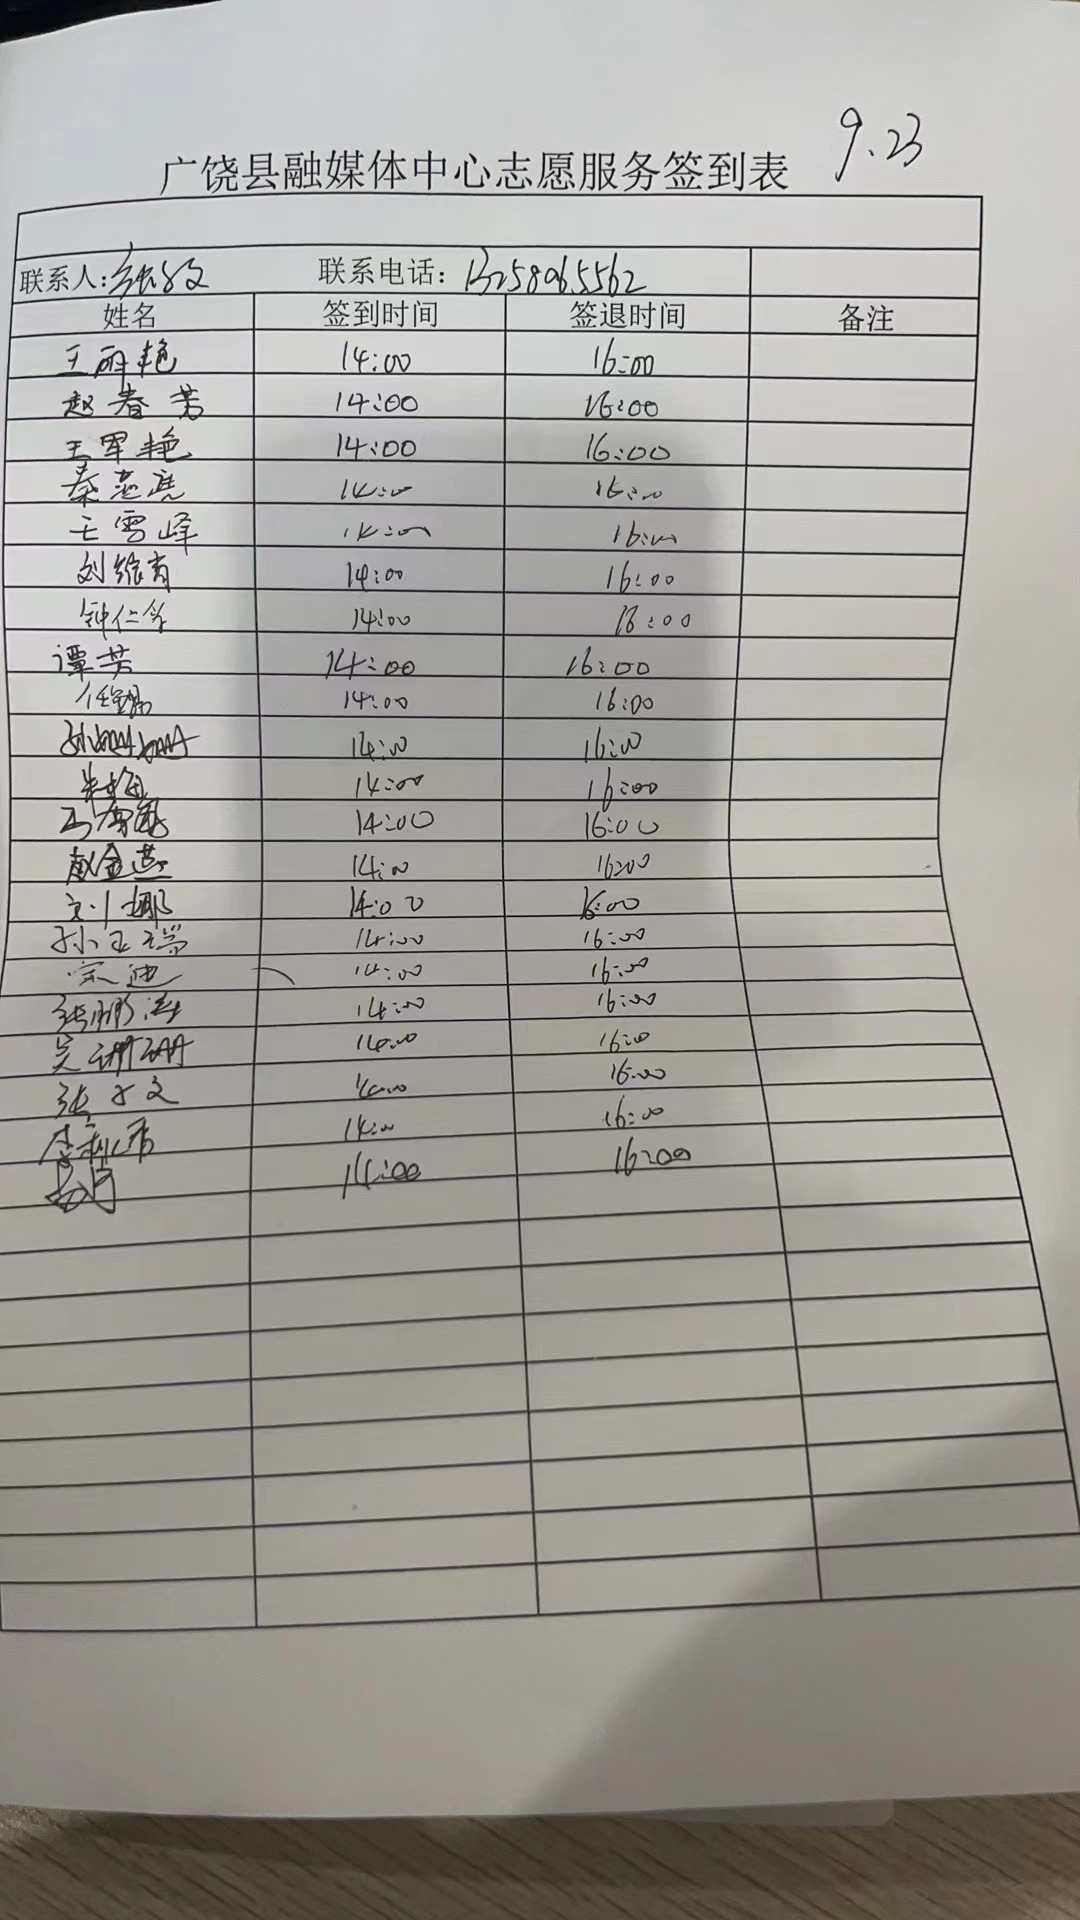 9.23
广饶县融媒体中心志愿服务签到表
联系人: 联系电话:
姓名 签到时间 签退时间 备注
王丽艳 14:00 16:00
赵春芳 14:00 16:00
王军艳 14:00 16:00
秦 14:00 16:00
王雪峰 14:00 16:00
刘 14:00 16:00
钟仁 14:00 :00
谭芳 14:00 16:00
任 14:00 16:00
孙 14:00 16:00
朱梅 14:00 16:00
14:00 16:00
赵金燕 14:00 16:00
刘娜 14:00 16:00
孙玉瑞 14:00 16:00
宋迪 14:00 16:00
张鹏涛 14:00 16:00
吴珊珊 14:00 16:00
张 文 14:00 16:00
李 14:00 16:00
14:00 16:00